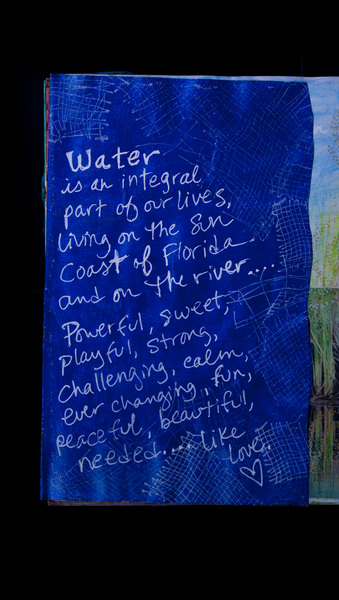 Water
is an integral
part of our lives,
living on the Sun
Coast of Florida
and on the river....
Powerful, sweet,
playful, strong,
challenging, calm,
ever changing, fun,
peaceful, beautiful,
needed.... like
love..